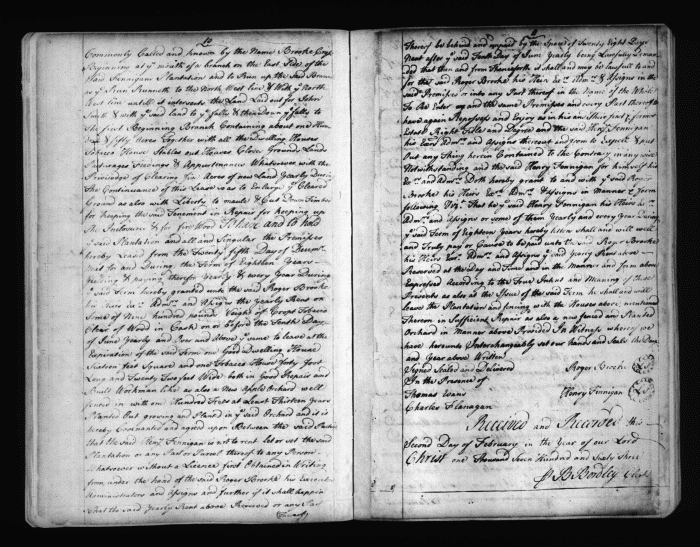 10
Commonly Called and known by the Name Brooke Cross
Beginning at ye mouth of a branch on the East side of the
said Fennigans Plantation and to Run up the said Branch
as ye Run Runneth to the North West line & With ye North
West line untill it intersects the Land Laid out for John
Smith & with ye said land to ye falls & then Down ye falls to
the first Beginning Branch Containing about one Hun
& fifty Acres Together with all the Dwelling Houses
Tobacco House Stables out Houses Close Grounds Lands
Passages Feedings & Appurtenances Whatsoever with the
Priviledge of Clearing Acres of new Land Yearly During
the Continuance of this Lease so as to Enlarge ye Cleared
Ground as also with Liberty to maule & Cut Down Timber
for keeping the said Tenement in Repair for keeping up
the Inclosures & for fire Wood To Have and to hold
ye said Plantation and all and Singular the Premises
hereby Leased from the Twenty fifth Day of Decem
next for and During the Term of Eighteen Years
Yeilding & paying therefor Yearly & every Year During
ye said Term hereby granted unto the said Roger Brooke
his Heirs Exr Admrs and Assigns the Yearly Rent or
Some of Nine Hundred Pounds Weight of Crop Tobacco
Clear of Wood in Cask on or before the Tenth Day
of June Yearly and Over and Above ye same to leave at the
Expiration of the said Term one Good Dwelling House
Sixteen feet Square and one Tobacco House forty foot
Long and Twenty Two foot Wide both in Good Repair and
Built Workman like as also a New Apple Orchard well
fenced in with one Hundred Trees at Least Thirteen Years
Planted Out growing and Placed in ye said Orchard and it is
hereby Covenanted and agreed upon Between the said Parties
that the said Henry Fennigan is not to rent Let or set the said
Plantation or any Part or Parcel thereof to any Person
Whatsoever without a Licence first Obtained in Writing
from under the hand of the said Roger Brooke his Executors
Administrators and Assigns and further if it shall happen
that the said Yearly Rent above Reserved or any Part
thereof be behind and unpaid by the Space of Twenty Eight Days
Next after ye said Tenth Day of June Yearly being Lawfully Deman
ded that then and from Thenceforth it shall and may be lawfull to and
for the said Roger Brooke his Heirs Exrs Admrs & Assigns in the
said Premises or into any Part thereof in the Name of the Whole
To Re Enter up and the same Premises and every Part thereof to
have again Repossess and Enjoy as in his and their first & former
Estate Right Title and Degree and the said Henry Fennigan
his Exrs Admrs and Assigns thereout and from to Expect & put
Out any Thing herein Contained to the Contrary in any wise
Notwithstanding and the said Henry Fennigan for himself his
Exrs and Admrs Doth hereby Covenant to and with ye said Roger
Brooke his Heirs Exrs Admrs & Assigns in Manner & form
following Vizt That he ye said Henry Fennigan his Heirs Exrs
Admrs and Assigns or some of them Yearly and every Year During
ye said Term of Eighteen Years hereby letten shall and will well
and Truly pay or Cause to be paid unto the said Roger Brooke
his Heirs Exrs Admrs and Assigns ye said Yearly Rent above
Reserved at the Day and Time and in the Manner and form above
Expressed According to the True Intent and Meaning of these
Presents as also at the Expire of the said Term he shall and will
leave the Plantation and fencing with the Houses above mentioned
Thereon in Sufficient Repair as also a new fenced and Planted
Orchard in Manner above Provided In Witness whereof we
have hereunto Interchangeably set our hands and Seals the Day
and Year above Written
Signed Sealed and Delivered
In the Presence of
Roger Brooke
Thomas Evans
Henry Finnigan
Charles Flanagan
Received and Recorded this
Second Day of February in the Year of our Lord
Christ one Thousand Seven Hundred and Sixty three
JB Bordley Clerk